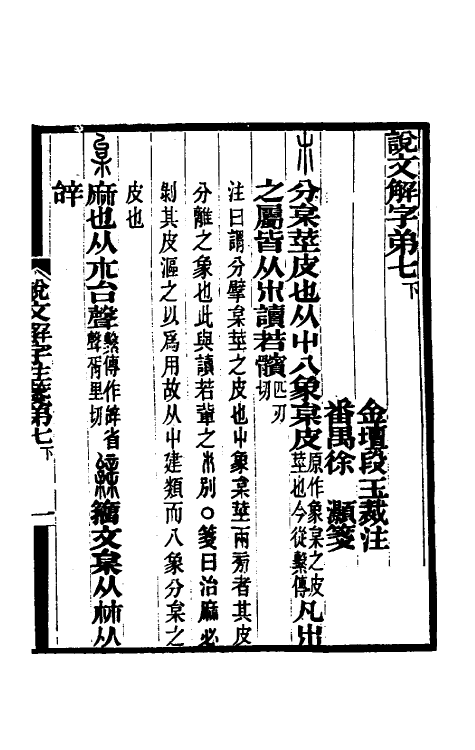 說文解字弟七下
金壇段玉裁注
番禺徐灝箋
𣎳 分枲莖皮也从屮八象枲皮原作象枲之皮莖也今從繫傳凡𣎳
之屬皆从𣎳讀若髕匹刃切
注曰謂分擘枲莖之皮也屮象枲莖兩㫄者其皮
分離之象也此與讀若輩之𣎵別○箋曰治麻必
剝其皮漚之以爲用故从屮建類而八象分枲之
皮也
枲 麻也从𣎳台聲繫傳作辝省聲胥里切 籒文枲从𣏟从
辝
說文解字注箋第七下
一